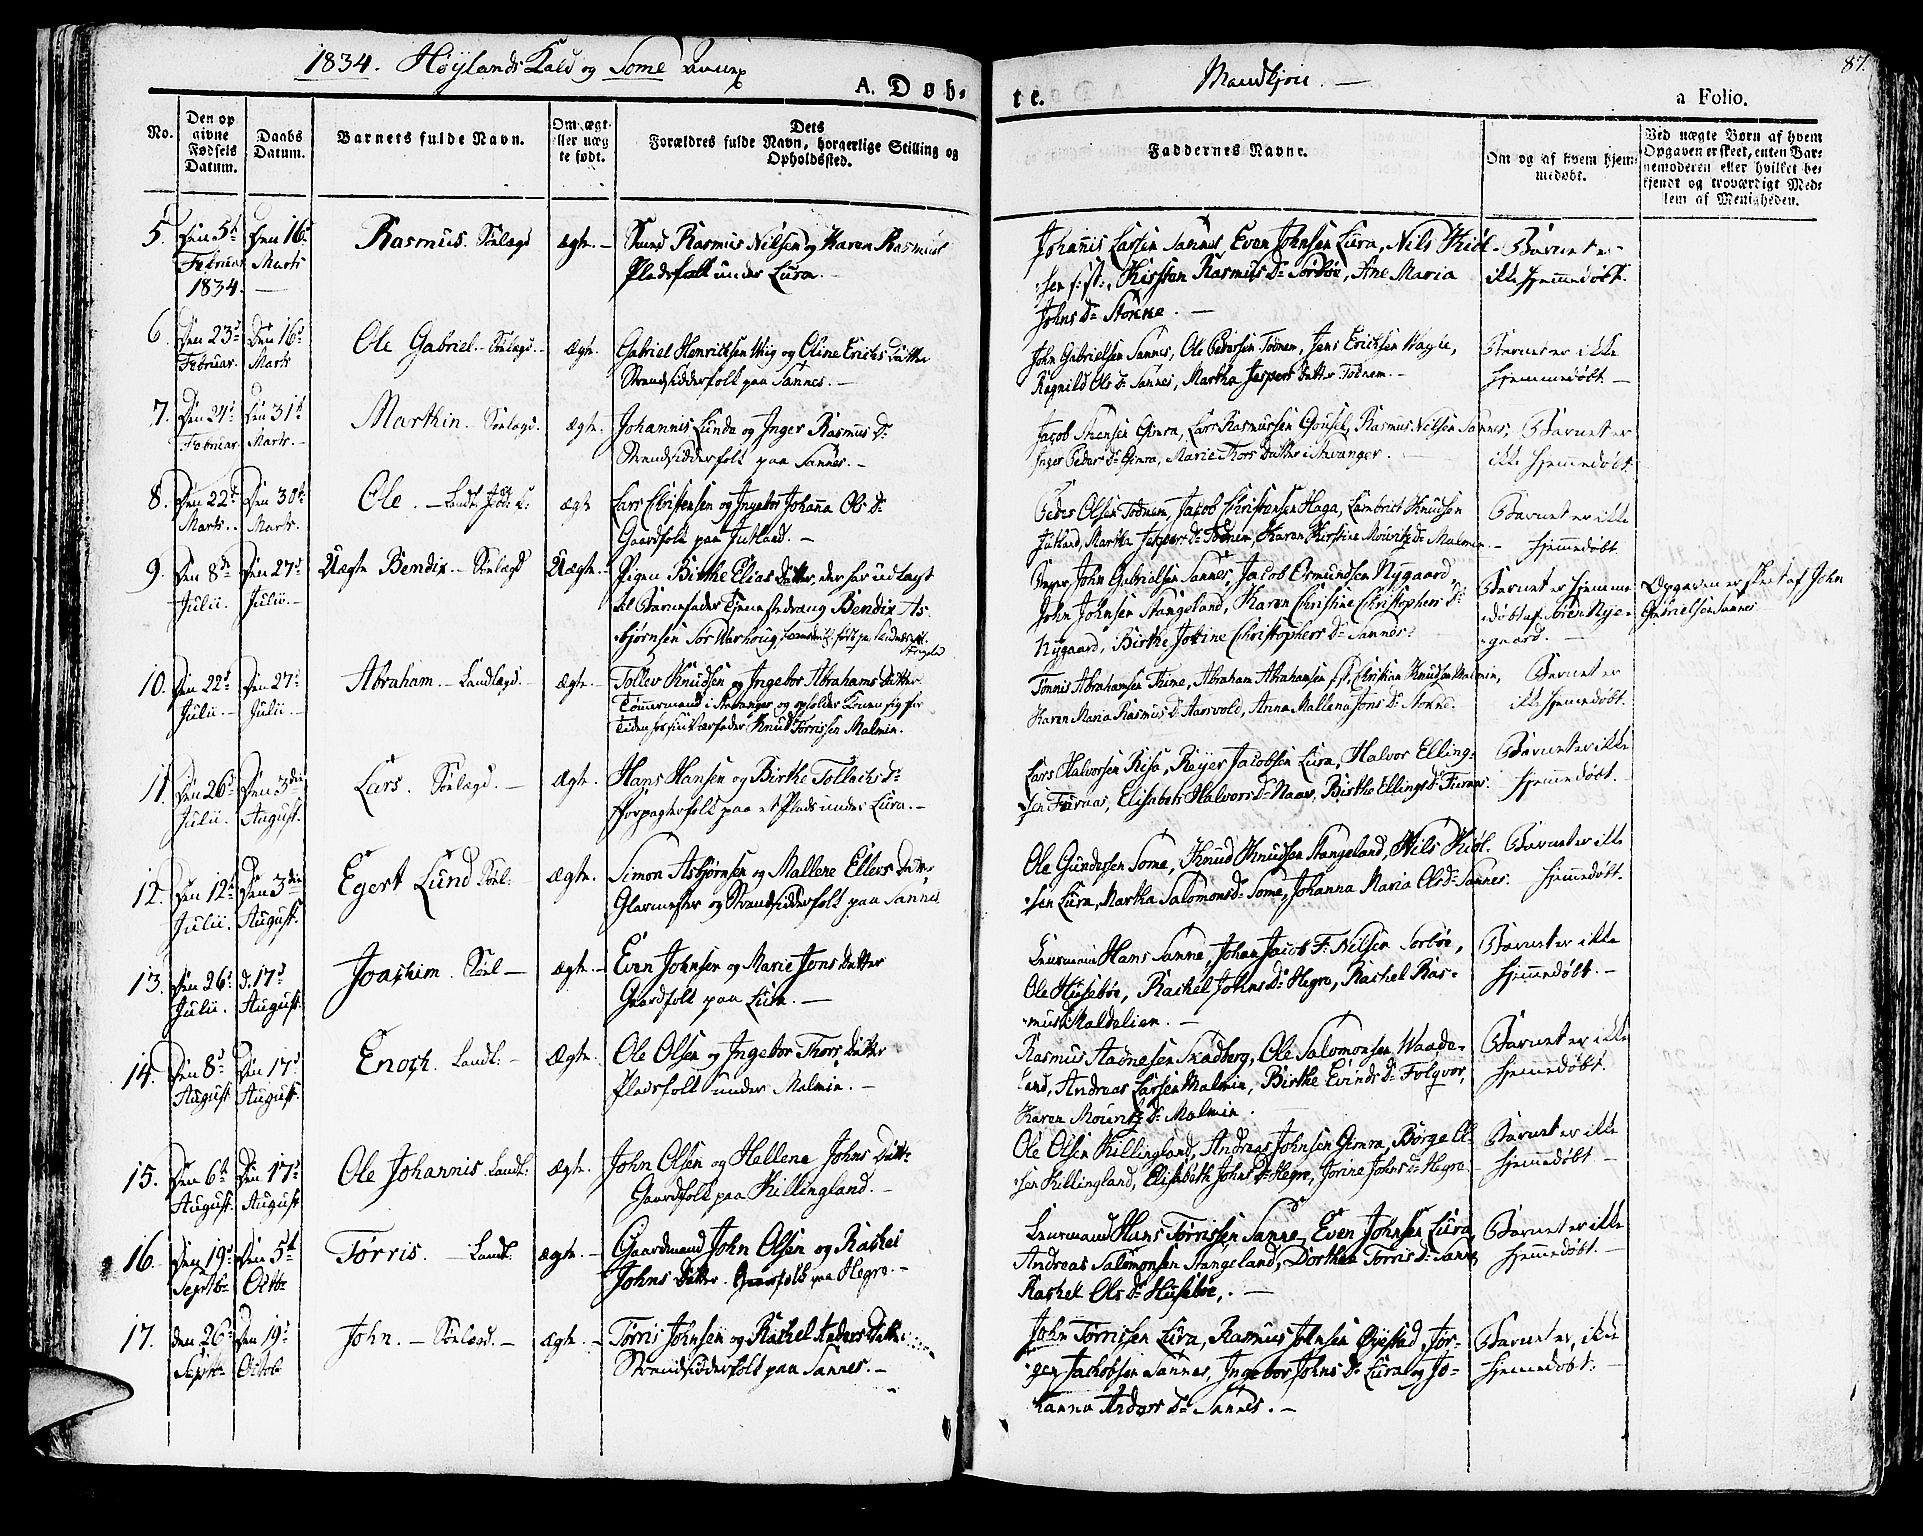 1834. Høylands Kald og Some
A. Døb-
te.
Mandkjön. —
87.
a Folio.
No.
Den op
givne
Fødsels
Datum.
Daabs
Datum.
Barnets fulde Navn.
Om ægt-
eller uæg
te født.
Dets
Forældres fulde Navn, borgerlige Stilling og
Opholdssted.
Faddernes Navne.
Om og af hvem hjem-
medøbt.
Ved uægte Børn af hvem
Opgaven er skeet, enten Bar-
nemoderen eller hvilket be-
kjendt og troværdigt Med-
lem af Menigheden.
5. Den 5t Februar 1834. Den 16d Marts Rasmus. Sönlægd ægte. —
Rasmus Nilsen og Karen Rasmus
Pladsfolk under Lura. —
Johannis Larsen Sannes, Even Johnsen Lura, Nils Kiöl-
sen , Kirsten Rasmus Dr Sörböe, Ane Maria
Johns Dr Stokke. —
Barnet er
ikke hjemmedøbt.
6. Den 23d Februar. Den 16d Marts Ole Gabriel. Sönlægd. ægte.
Gabriel Henrichsen Wiig og Oline Erichs Datter
Strandsidderfolk paa Sannes. —
John Gabrielsen Sannes, Ole Pedersen Todnem, Jens Erichsen Wagle,
Ragnild Ols Dr Sannes, Martha Jespers Datter Todnem. —
Barnet er ikke
hjemmedøbt. —
7. Den 24d Februar. Den 31te Marts. Marthin. Sönlægd. ægte.
Johannis Lunde og Inger Rasmus Dr
Strandsidderfolk paa Sannes. —
Jacob Gimra, Lars Rasmussen Gousel, Rasmus Nilsen Sannes,
Inger Peders Dr Gimra, Marie Thors Datter i Stavanger.
Barnet er
ikke hjemmedøbt.
8. Den 22d Marts. Den 30te Marts. Ole. — ægte
Lars Christensen og Ingebor Johanna Ols Dr
Gaardfolk paa Jutland. —
Peder Olsen Todnem, Jacob Christensen Haga, Lambrict Knudsen
Jutland, Martha Jespers Dr Todnem, Karen Kirstine Mouritz Dr Malmin. —
Barnet er ikke
hjemmedøbt.
9. Den 8de Julii. Den 27d Julii. — Uægte Bendix. — Sönlægd Uægte. —
Pigen Birthe Elias Datter, der har udlagt
til Barnefader Tjenestedreng Bendix As-
björnsen Sör Warhoug,
John Gabrielsen Sannes, Jacob Ormundsen Nygaard,
John Johnsen Stangeland, Karen Christine Christophers Dr
Nygaard, Birthe Jokine Christophers Dr Sannes.
Barnet er hjemme-
døbt af Sören Nye-
gaard. —
Opgaven er skeet af John
Gabrielsen Sannes
10. Den 22d Julii. — Den 27de Julii. — Abraham. — Landlægd. ægte. —
Tollev Knudsen og Ingebor Abrahams Datter
Tömmermand i Stavanger og opholder Konen sig for
Tiden hos sin Værfader Knud Torrissen Malmin.
Tönnis Abrahamsen Time, Abraham Abrahamsen , Christian Knudsen Malmin,
Karen Maria Rasmus Dr Aarsvold, Anna Mallena Jons Dr Stokke.
Barnet er
ikke hjemmedøbt.
11. Den 26d Julii. Den 3die August. Lars. Sönlægd. — Ægte.
Hans Hansen og Birthe Tollachs Dr
Forpagterfolk paa et Plads under Lura. —
Lars Halvorsen Risa, Reyer Jacobsen Lura, Halvor Elling-
sen Furnas, Elisabeth Halvors Dr Naas, Birthe Ellings Dr Furnas.
Barnet er ikke
hjemmedøbt. —
12. Den 12te Julii. Den 3die August. Egert Lund Sönl. ægte.
Simon Asbjørnsen og Mallene Ellers Datter
Glarmester og Strandsidderfolk paa Sannes
Ole Gundersen Some, Knud Knudsen Stangeland, Nils Kiöl-
sen Lura, Martha Salomons Dr Some, Johanna Maria Ols Dr Sannes.
Barnet er ikke
hjemmedøbt.
13. Den 26d Julii. d. 17d August. Joachim. Sönl — ægte. —
Even Johnsen og Marie Jons Datter
Gaardfolk paa Lura. —
Lensmand Hans Sanne, Johan Jacob Nilsen Sorböe,
Ole Husebøe, Rachel Johns Dr Hegre, Rachel Ras-
mus Dr Maldelien. —
Barnet er ikke
hjemmedøbt. —
14. Den 8d August. Den 17d August. Enoch. Landl. — Ægte.
Ole Olsen og Ingebor Thors Datter
Pladsfolk under Malmin. —
Rasmus Aadnesen Skadberg, Ole Salomonsen Waada-
land, Andreas Larsen Malmin, Birthe Evinds Dr Folqvor,
Karen Mouritz Dr Malmin.
Barnet er ikke
hjemmedøbt.
15. Den 6te August. Den 17d August Ole Johannis. Landl. ægte.
John Olsen og Hellene Johns Datter
Gaardfolk paa Killingland. —
Ole Olsen Killingland, Andreas Johnsen Gimra, Börge Ol-
sen Killingland, Elisabeth Johns Dr Hegre, Jorine Johns Dr Hegre
Barnet er ikke
hjemmedøbt —
16. Den 19d Septbr Den 5te Octbr Torris. — Landl. ægte. —
Gaardmand John Olsen og Rachel
Johns Datter. Gaardfolk paa Hegre. —
Lensmand Hans Torrissen Sanne, Even Johnsen Lura,
Andreas Salomonsen Stangeland, Dorthea Torris Dr Sanne,
Rachel Ols Dr Husebøe. —
Barnet er ikke
hjemmedøbt. —
17. den 26d Septr Den 19d Octob John. — Sönlægd. — ægte. —
Torris Johnsen og Rachel Anders Datter
Strandsidderfolk paa Sannes. —
John Torrisen Lura, Rasmus Johnsen Öyestad, Jör-
gen Jackobsen Sannes, Ingebor Johns Dr Lura og Jo-
hanna Anders Dr Sannes. —
Barnet er, ikke
hjemmedøbt. —